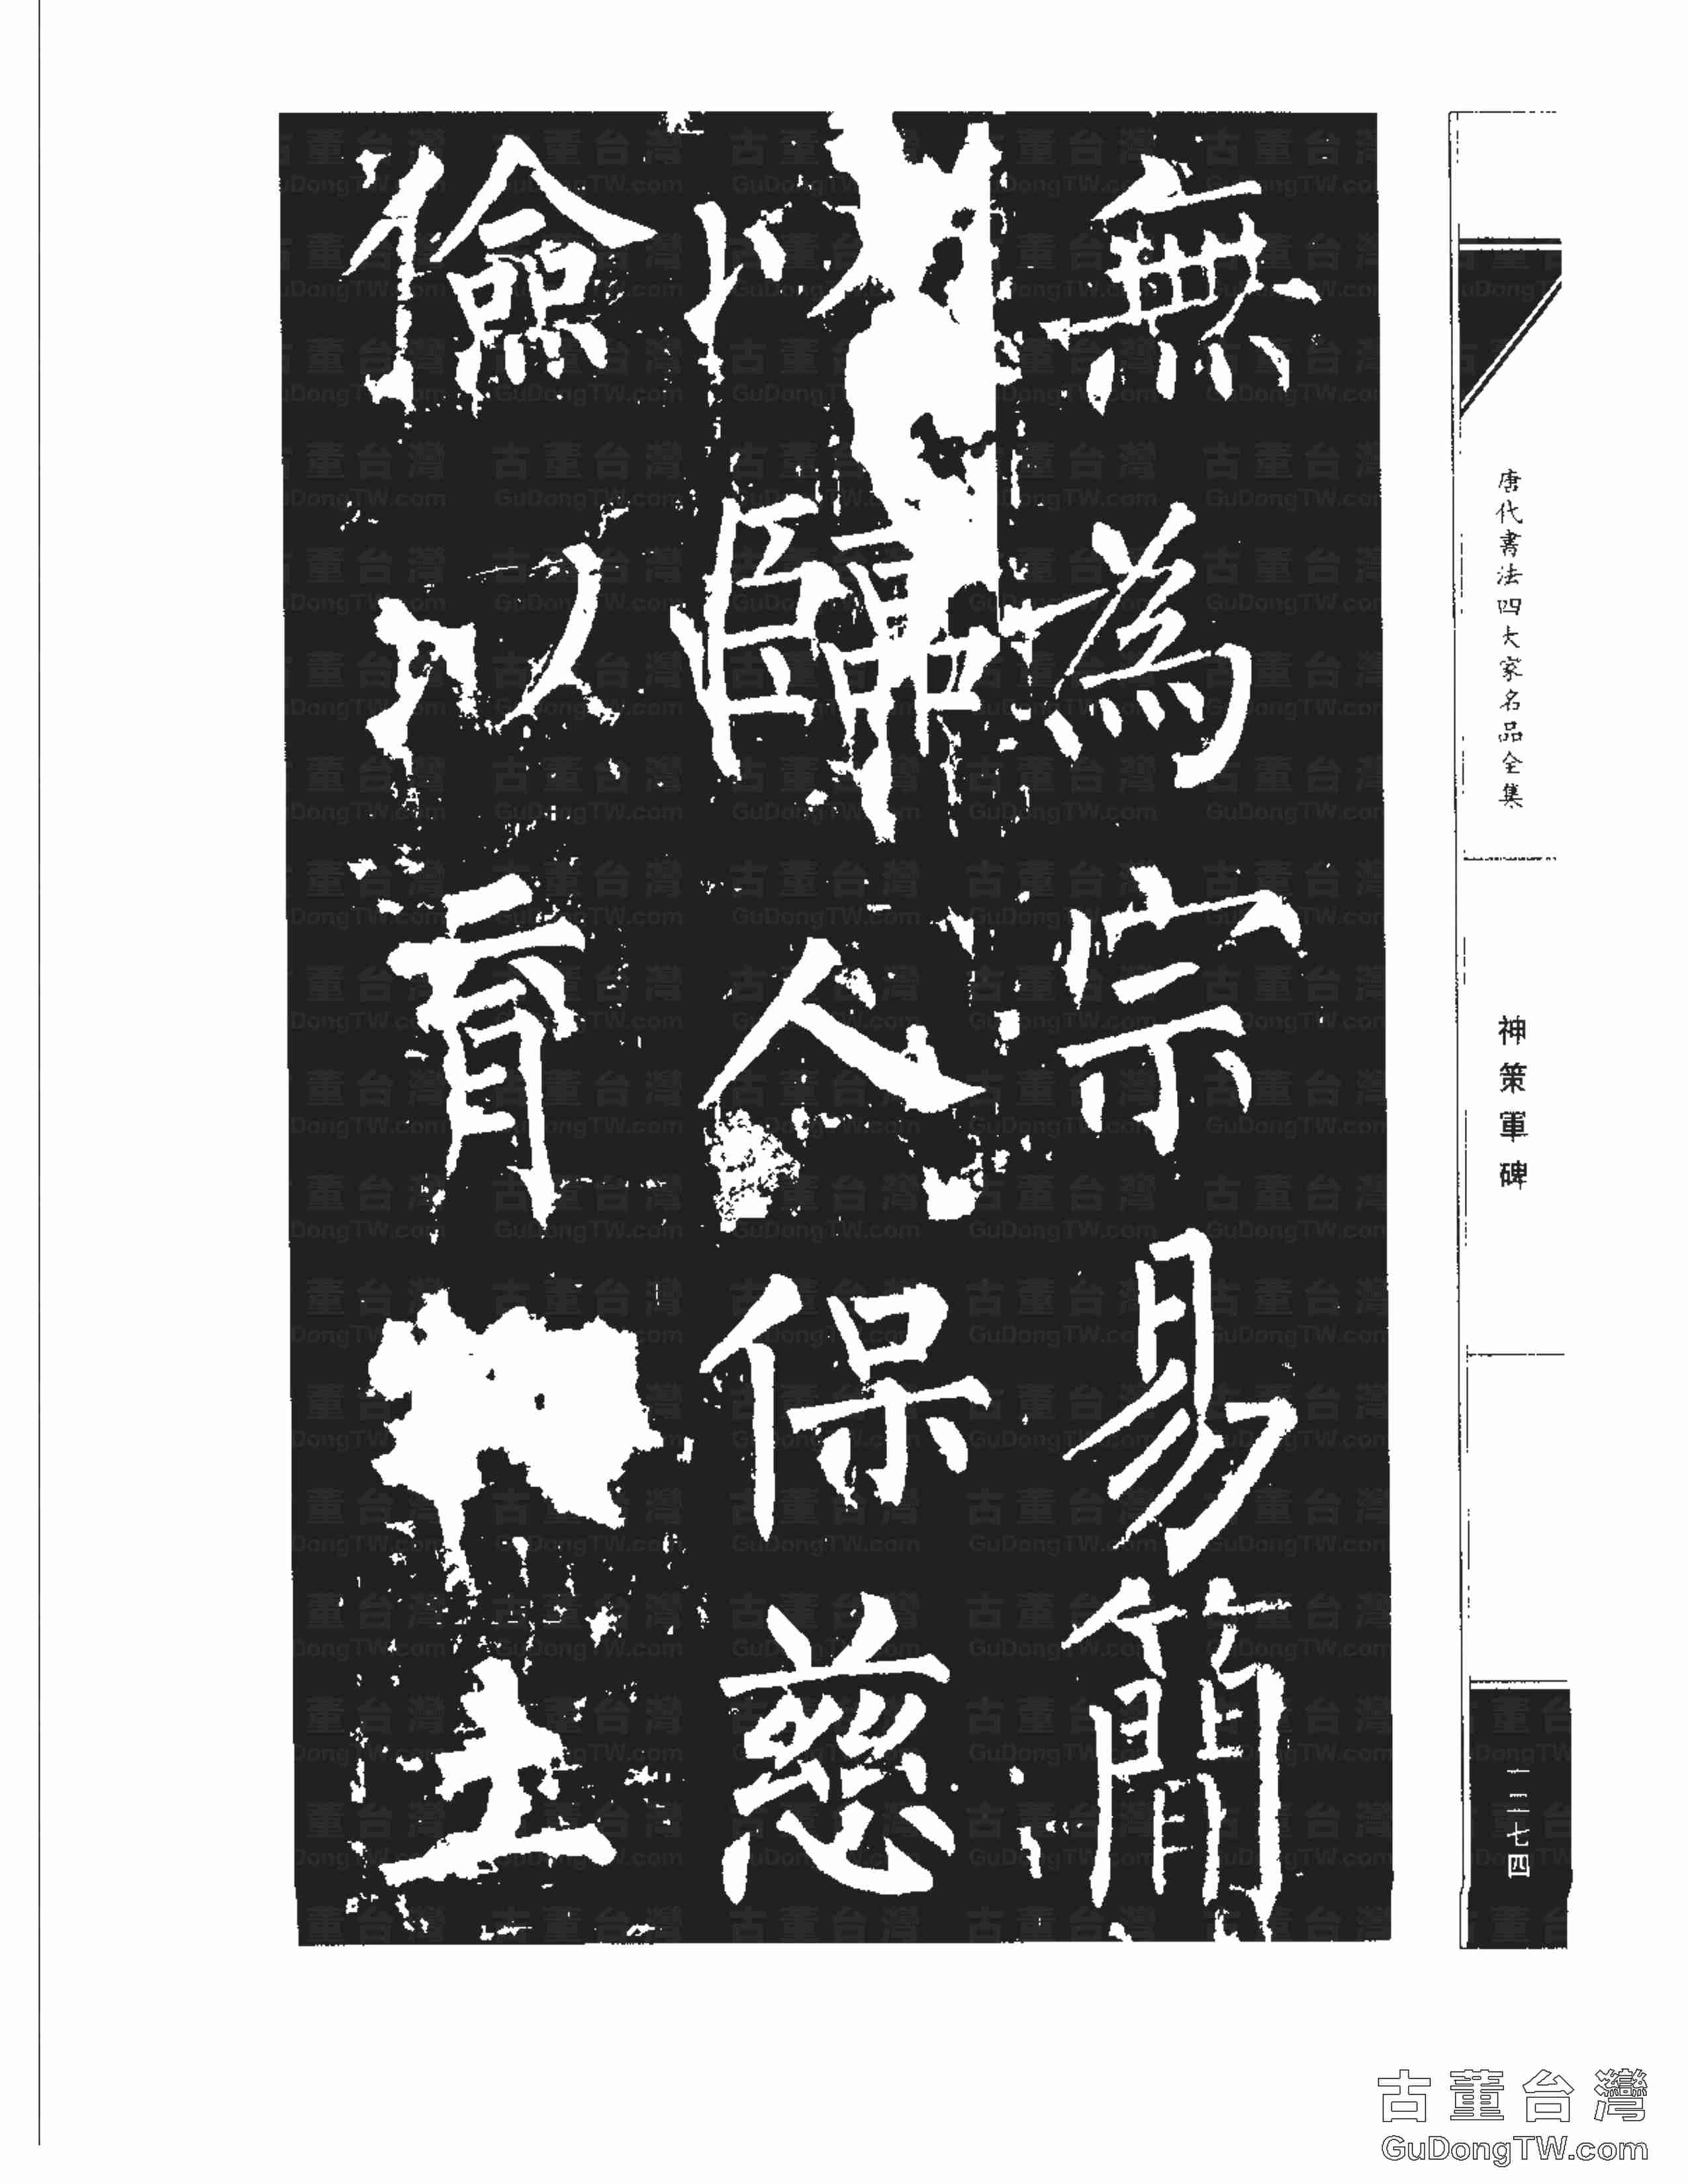 無為宗易簡
以臨人保慈
儉以育物土
唐代書法四大家名品全集
神策軍碑
一二七四
古董台灣
GuDongTW.com